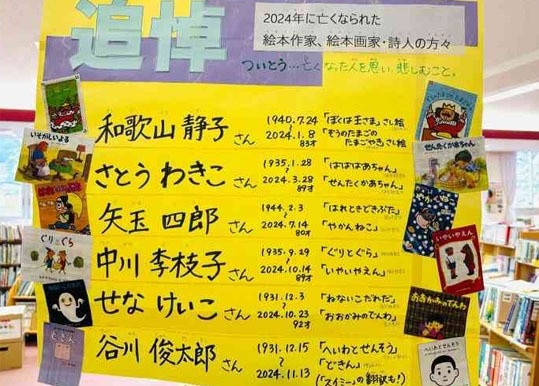 追悼
2024年に亡くなられた
絵本作家、絵本画家・詩人の方々
ついとう…亡くなった人を思い、悲しむこと。
和歌山 静子さん
1940.7.24
~
2024.1.8
83才
「ぼくは王さま」さし絵
「ぞうのたまごの
たまごやき」さし絵
さとう わきこさん
1935.1.28
~
2024.3.28
89才
「ばばばあちゃん」
「せんたくかあちゃん」
矢玉 四郎さん
1944.2.3
~
2024.7.14
80才
「はれときどきぶた」
「やかんねこ」
中川 李枝子さん
1935.9.29
~
2024.10.14
89才
「ぐりとぐら」
「いやいやえん」
せな けいこさん
1931.12.3
~
2024.10.23
92才
「ねないこだれだ」
「おおかみのでんわ」
谷川 俊太郎さん
1931.12.15
~
2024.11.13
「へいわとせんそう」
「どきん」
(「スイミー」の翻訳も!)
いそがしいよる
はれときどきぶた
ぐりとぐら
どきん
せんたくかあちゃん
いやいやえん
おおかみのでんわ
へいわとせんそう